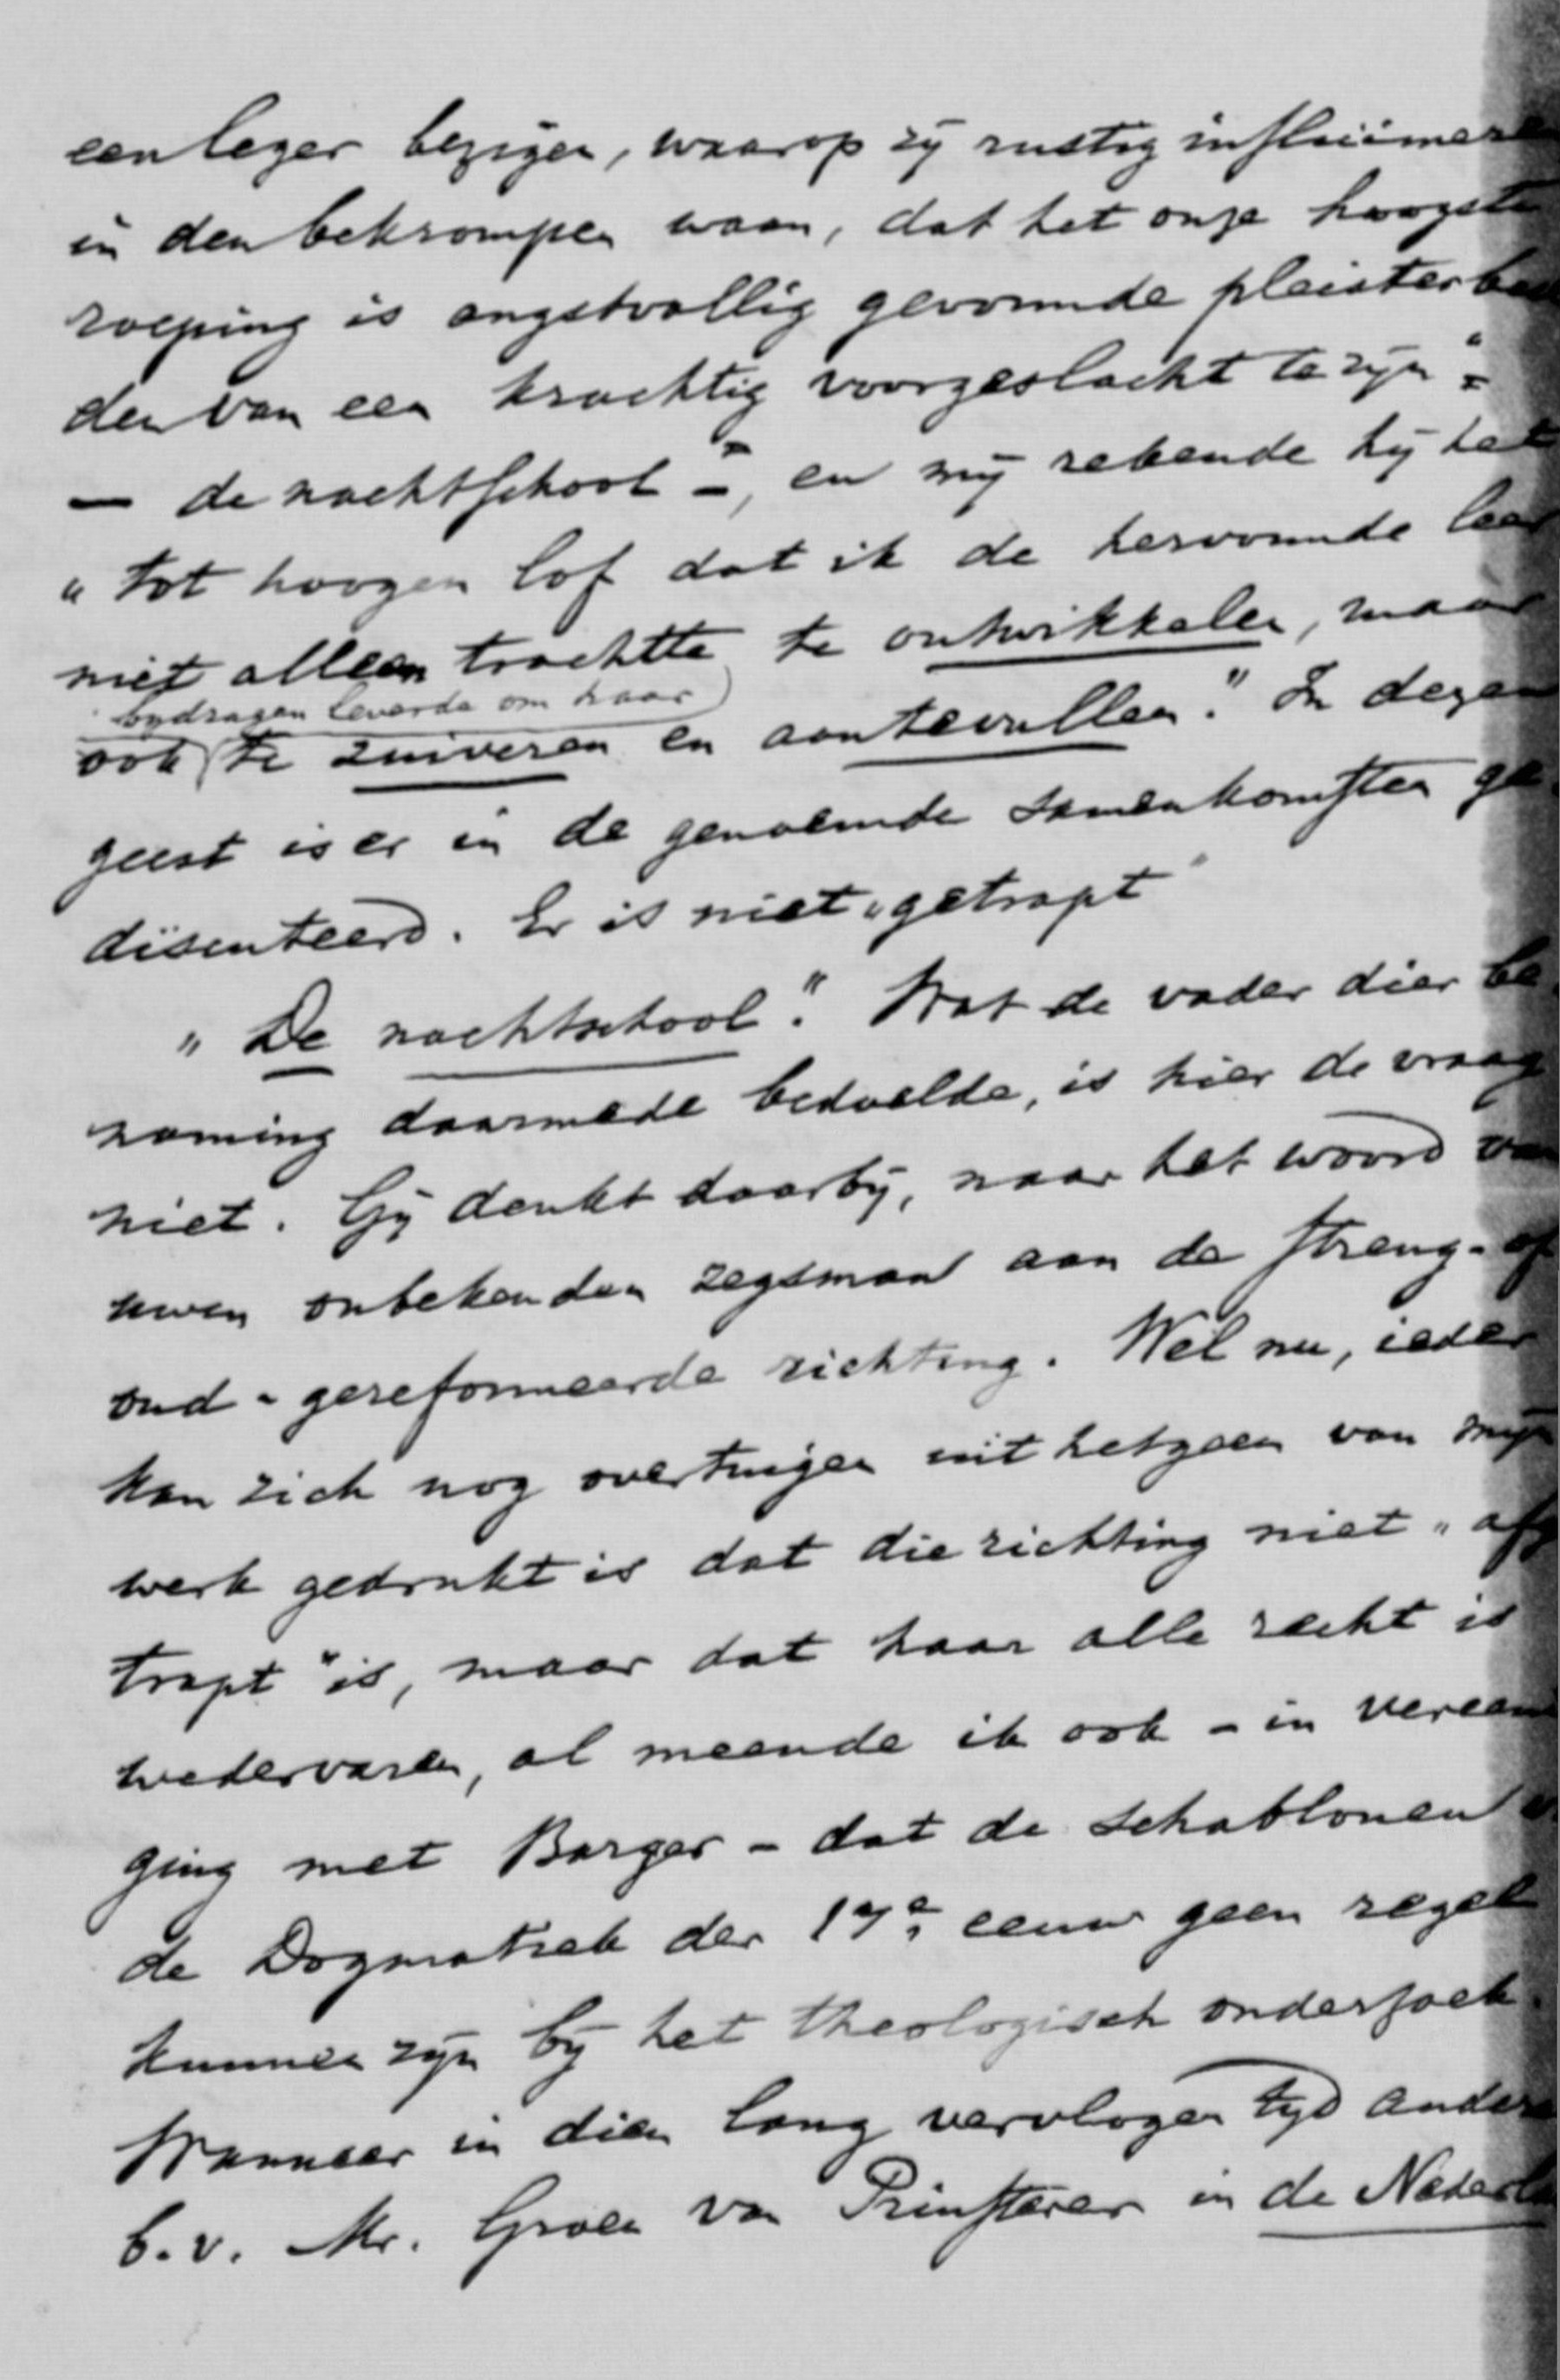 een leger bezigen, waarop zij rustig insluimeren
in den bekrompen waan, dat het onze hoogste
roeping is angstvallig gevormde pleisterbeel
den van een krachtig voorgeslacht te zijn"
— de nachtschool –, en mij rekende hij het
"tot hoogen lof dat ik de hervormde leer
niet alleen trachtte te ontwikkelen, maar
bijdragen leverde om haar
ook te zuiveren en aantevullen." In dezen
geest is er in de genoemde samenkomsten ge
discuteerd. Er is niet "getrapt"
"De nachtschool". Wat de vader dier be
naming daarmede bedoelde, is hier de vraag
niet. Gij denkt daarbij, naar het woord van
uwen onbekenden zegsman aan de streng- of
oud-gereformeerde richting. Wel nu, ieder
kan zich nog overtuigen uit hetgeen van mijn
werk gedrukt is dat die richting niet "afge
trapt" is, maar dat haar alle recht is
wedervaren, al meende ik ook – in vereeni
ging met Barger – dat de schablonen
de Dogmatiek der 17e eeuw geen regel
kunnen zijn bij het theologisch onderzoek.
Wanneer in dien lang vervlogen tijd anderen
b.v. Mr. Groen van Prinsterer in de Nederla